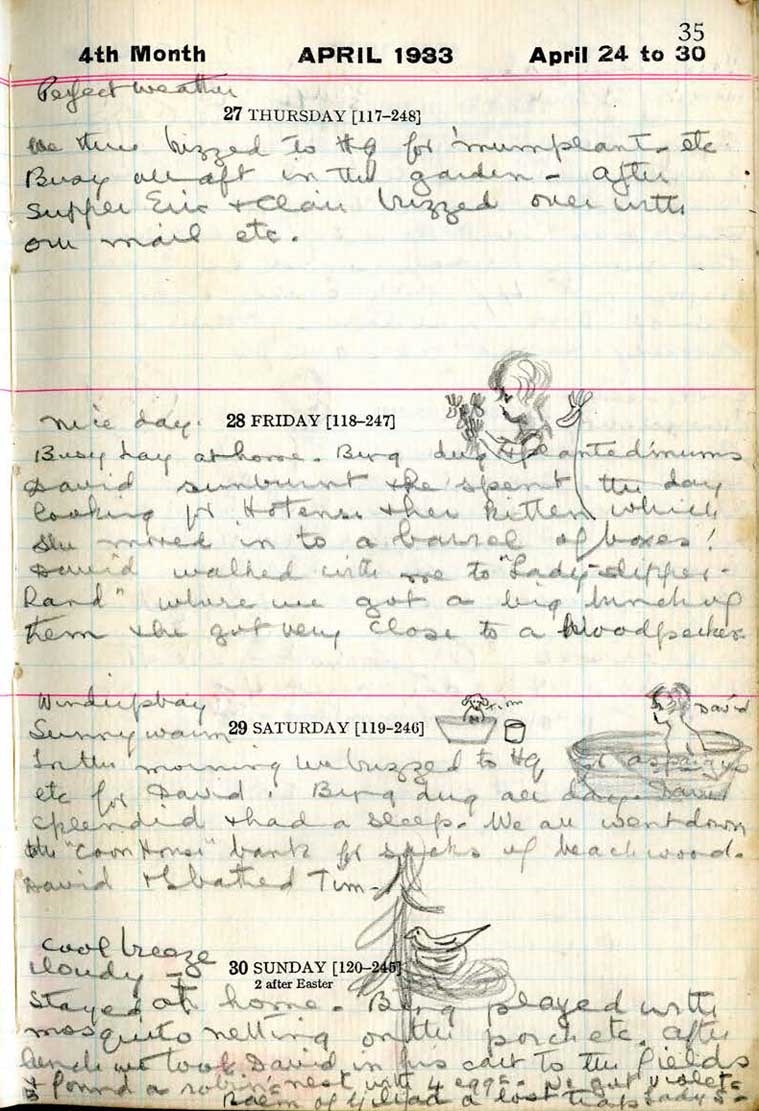 35
4th Month APRIL 1933 April 24 to 30
Perfect weather
27 THURSDAY [117-248]
we three buzzed to Hq for 'mumplants etc
Busy all aft in the garden - after
supper Eric + Clair buzzed over with
our mail etc.
nice day.
28 FRIDAY [118-247]
Busy day at home. Burg dug + planted 'mums
David sunburnt + he spent the day
looking for Hotense + her kitten which
she moved in to a barrel of boxes!
David walked with me to "Lady-slipper-
Land" where we got a big bunch of
them + he got very close to a woodpecker.
Windup bay
Sunny warm
29 SATURDAY [119-246]
Tim
David
In the morning we buzzed to Hq for asparagus
etc for David. Burg dug all day. David
splendid + had a sleep. We all went down
to the "Coon House" bank for sacks of beach wood.
David + I bathed Tim-
cool breeze
cloudy
30 SUNDAY [120-245]
2 after Easter
Stayed at home. Burg played with
mosquito netting on the porch etc. after
lunch we took David in his cart to the fields
+ found a robin's nest with 4 eggs. We got violets
Balm of Gilead a lost Lady's-